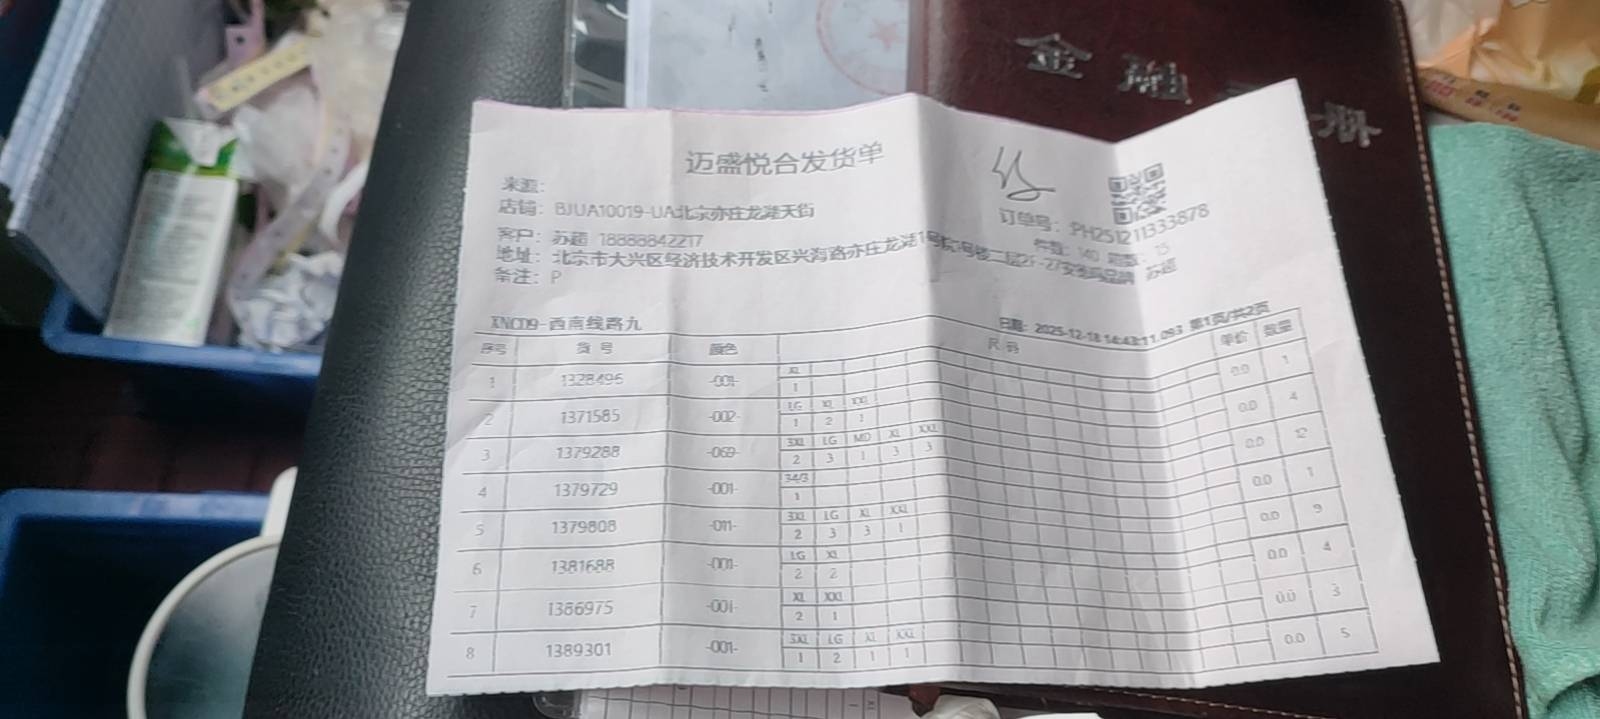 金融
册
迈盛悦合发货单
来源:
店铺: BJUA10019-UA北京亦庄龙湖天街
订单号: PH251211333878
客户: 苏超 18888842217
件数: 140 箱数: 15
地址: 北京市大兴区经济技术开发区兴海路亦庄龙湖1号院1号楼二层2F-27安德玛品牌 苏超
备注: P
XNCD9-西南线路九
日期: 2025-12-18 14:43:11.093 第1页/共2页
序号 货号 颜色 尺码 单价 数量
XL
1 1328496 -001- 1 0.0 1
LG XL XXL
2 1371585 -002- 1 2 1 0.0 4
3XL LG MD XL XXL
3 1379288 -069- 2 3 1 3 3 0.0 12
34/3
4 1379729 -001- 1 0.0 1
3XL LG XL XXL
5 1379808 -011- 2 3 3 1 0.0 9
LG XL
6 1381688 -001- 2 2 0.0 4
XL XXL
7 1386975 -001- 2 1 0.0 3
3XL LG XL XXL
8 1389301 -001- 1 2 1 1 0.0 5